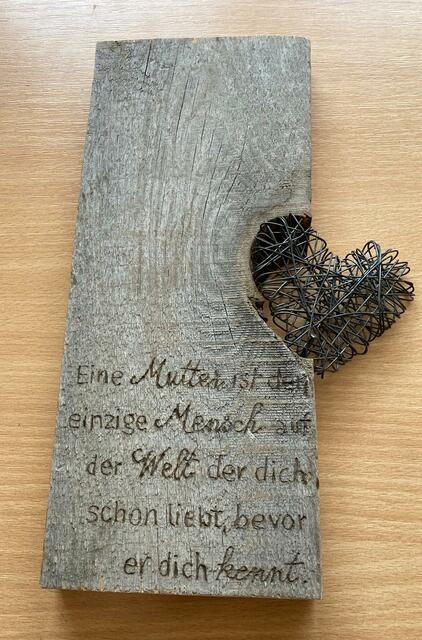 Eine Mutter ist der
einzige Mensch auf
der Welt der dich
schon liebt, bevor
er dich kennt.